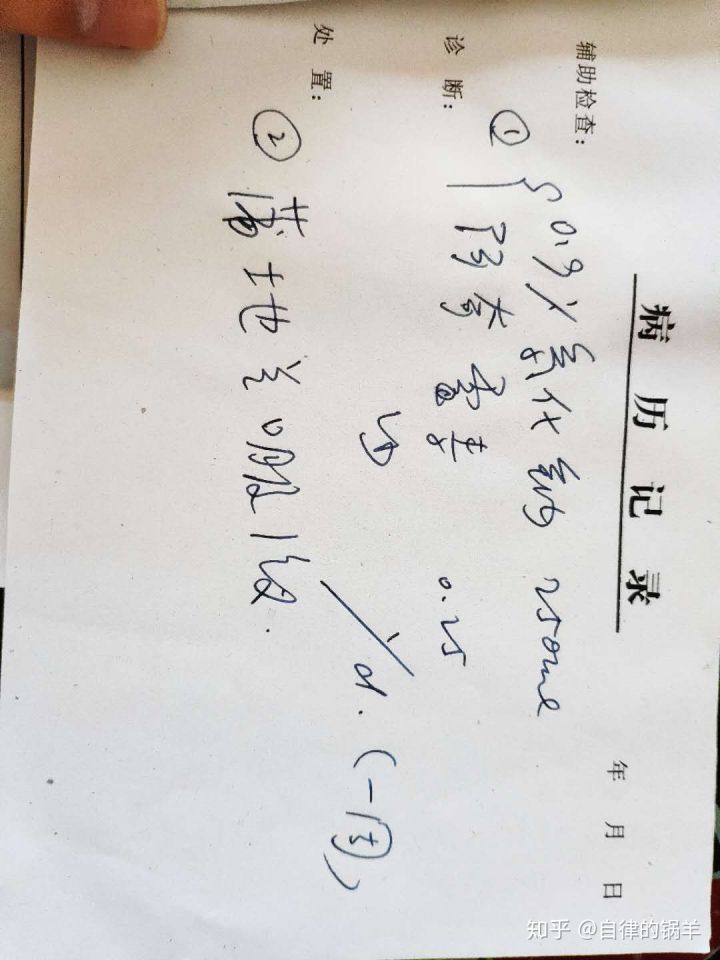 病历记录
年 月 日
辅助检查:
① { 0.9% 氯化钠 250ml
诊 断:
阿奇霉素 0.25
1/d. (一周)
处 置:
② 蒲地兰口服液.
知乎 @自律的锅羊